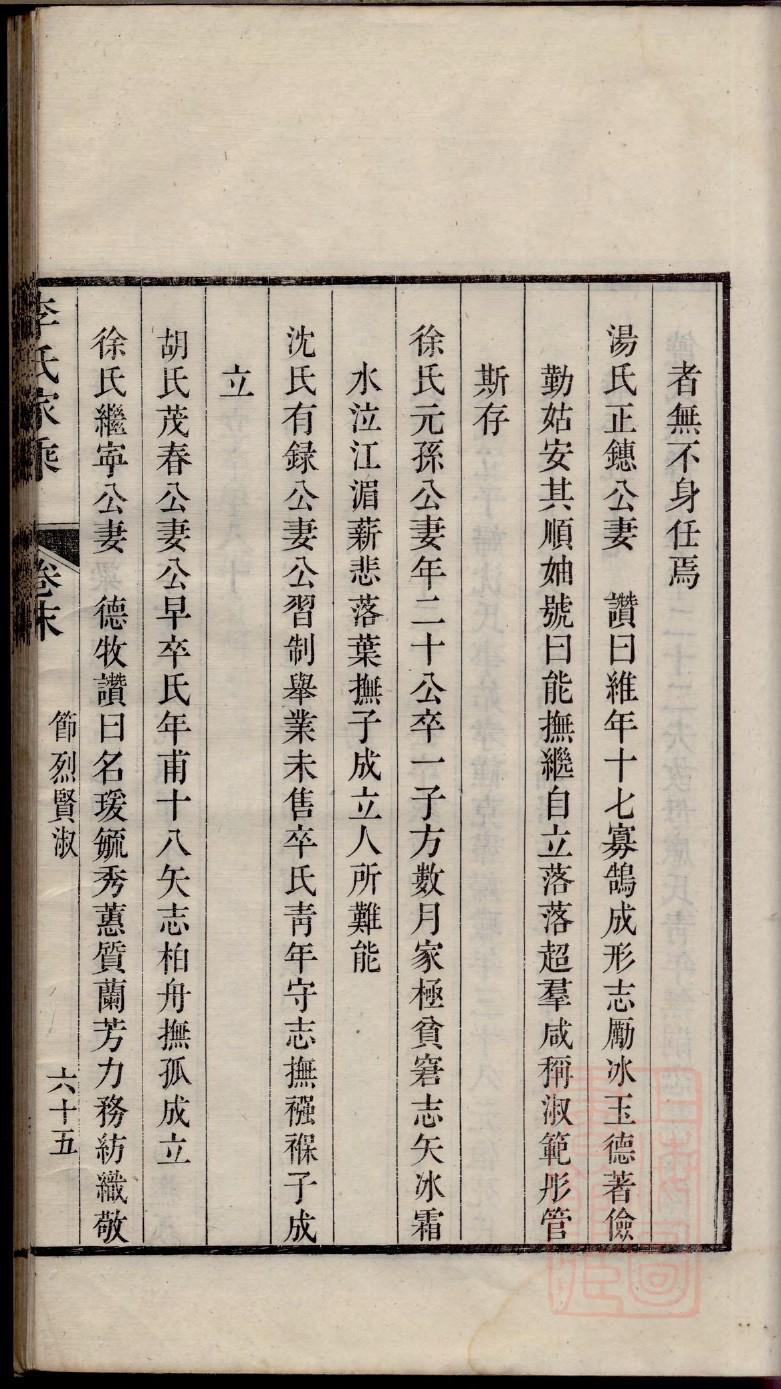 者無不身任焉
湯氏正鏸公妻　讚曰維年十七寡鵠成形志勵冰玉德著儉
勤姑安其順妯號曰能撫繼自立落落超羣咸稱淑範彤管
斯存
徐氏元孫公妻年二十公卒一子方數月家極貧窘志矢冰霜
水泣江湄薪悲落葉撫子成立人所難能
沈氏有録公妻公習制舉業未售卒氏靑年守志撫襁褓子成
立
胡氏茂春公妻公早卒氏年甫十八矢志柏舟撫孤成立
徐氏繼寜公妻　德牧讚曰名瑗毓秀蕙質蘭芳力務紡織敬
李氏家乘　卷末　節烈賢淑　六十五